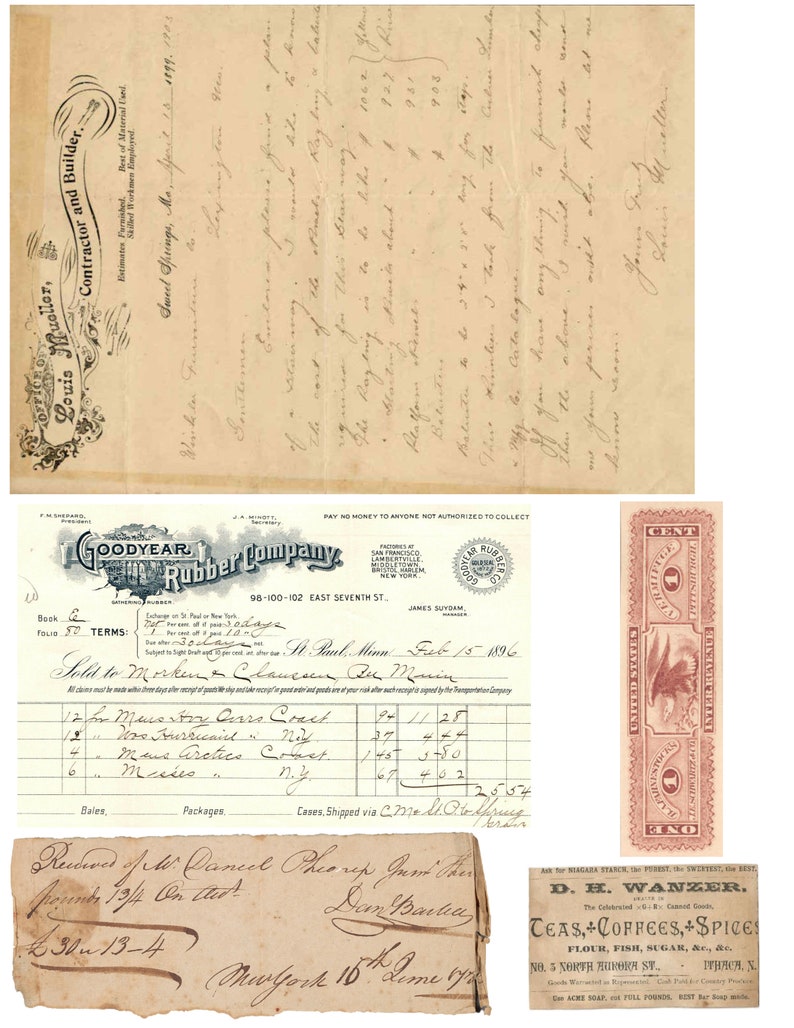 OFFICE OF
Louis Mueller,
Contractor and Builder.
Estimates Furnished. Best of Material Used.
Skilled Workmen Employed.
Sweet Springs, Mo, April 13 1899.
Winkler Furniture Co
Lexington Mo.
Gentlemen.
Enclosed please find a plan
of a Stairway. I would like to know
the cost of the Newels Rayling &
required for this Stairway.
The Rayling is to be like # 1062
Starting Newels about " # 927
Platform Newel " # 931
Baluster " # 903
Baluster to be
These Numbers I took from the
Mfg Co Catalogue.
If you have anything to furnish
then the above. I wish you would send
me your prices on it also. Please let me
know soon.
Yours Truly
Louis Mueller.
F. M. SHEPARD, President
J. A. MINOTT, Secretary.
PAY NO MONEY TO ANYONE NOT AUTHORIZED TO COLLECT
GOODYEAR Rubber Company.
GATHERING RUBBER.
FACTORIES AT
SAN FRANCISCO,
LAMBERTVILLE,
MIDDLETOWN,
BRISTOL, HARLEM,
NEW YORK.
GOODYEAR RUBBER CO
GOLD SEAL
1872
98-100-102 EAST SEVENTH ST.,
JAMES SUYDAM, MANAGER.
BOOK E
FOLIO 80
TERMS:
Exchange on St. Paul or New York.
Per cent. off if paid 30 days
1 Per cent off if paid 10 "
Due after 30 days not.
Subject to Sight Draft and 10 per cent. int. after due
St. Paul, Minn. Feb 15 1896
Sold to Morken & Claussen
All claims must be made within three days after receipt of goods. We ship and take receipt in good order and goods are at your risk after such receipt is signed by the Transportation Company
12 pr Mens Overs Coast 94 11 28
12 " Wos Hurricane " N.Y 37 4 44
4 " Mens Arctics Coast. 1 45 5 80
6 " Misses " N.Y. 67 4 02
25 54
Bales, Packages. Cases, Shipped via C. M. & St. P. to Spring Grove
ONE 1 CENT
UNITED STATES
INTER. REVENUE
Received of Mr. Daniel
pounds 13/4 On
£30 " 13 - 4
New York 16th June
Ask for NIAGARA STARCH, the PUREST, the SWEETEST, the BEST.
D. H. WANZER,
DEALER IN
The Celebrated ×G+R× Canned Goods,
TEAS,+COFFEES,+SPICES
FLOUR, FISH, SUGAR, &c., &c.
NO. 3 NORTH AURORA ST., - ITHACA, N.
Goods Warranted as Represented. Cash Paid for Country Produce.
Use ACME SOAP, cut FULL POUNDS. BEST Bar Soap made.